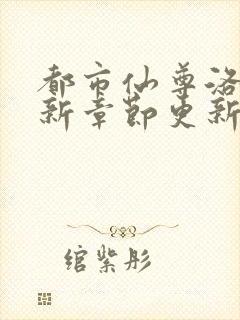 都市仙尊洛
新章节更新
绾紫彤